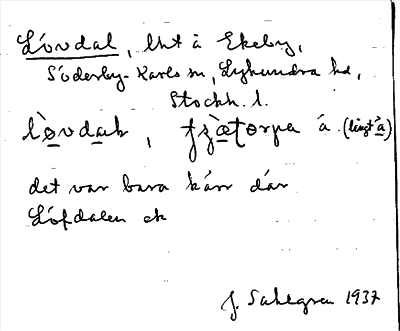 Lövdal, lht å Ekeby,
Söderby-Karls sn, Lyhundra hd,
Stockh. l.
lø̀vdaḷ, fjæ̀ṭorpa á. (långt á)
det var bara kärr där
Löfdalen ek
J. Sahlgren 1937